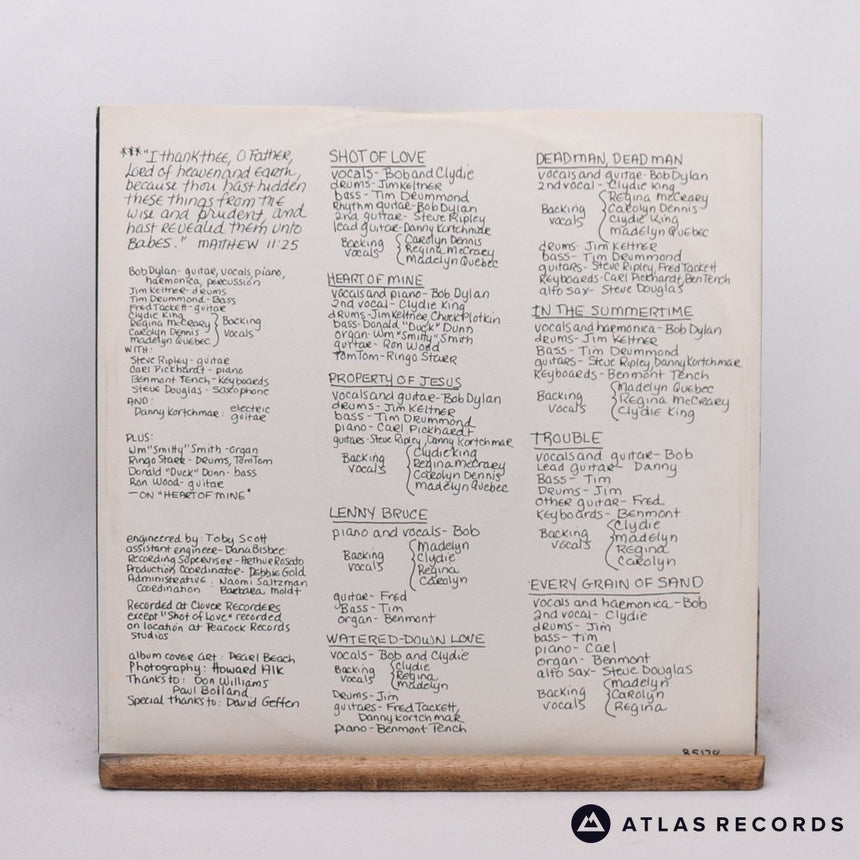 *** "I thank thee, O Father,
Lord of heaven and earth,
because thou hast hidden
these things from the
wise and prudent, and
hast revealed them unto
Babes." MATTHEW 11:25
Bob Dylan- guitar, vocals, piano,
harmonica, percussion
Jim Keltner- drums
Tim Drummond- Bass
Fred Tackett- guitar
Clydie King
Regina McCrary
Carolyn Dennis
Madelyn Quebec
Backing
vocals
WITH:
Steve Ripley- guitar
Carl Pickhardt- piano
Benmont Tench- Keyboards
Steve Douglas- saxophone
AND:
Danny Kortchmar: electric
guitar
PLUS:
Wm "Smitty" Smith-organ
Ringo Starr- Drums, TomTom
Donald "Duck" Dunn- bass
Ron Wood- guitar
—ON "HEART OF MINE"
engineered by: Toby Scott
assistant engineer- Dana Bisbee
Recording Supervisor- Arthur Rosato
Production Coordinator- Debbie Gold
Administrative: Naomi Saltzman
Coordination Barbara Moldt
Recorded at Clover Recorders
except "Shot of Love" recorded
on location at Peacock Records
Studios
album cover art: Pearl Beach
Photography: Howard Alk
Thanks to: Don Williams
Paul Bolland
Special thanks to: David Geffen
SHOT OF LOVE
vocals- Bob and Clydie
drums- Jim Keltner
bass- Tim Drummond
Rhythm guitar- Bob Dylan
2nd guitar- Steve Ripley
lead guitar- Danny Kortchmar
Backing
vocals
Carolyn Dennis
Regina McCrary
Madelyn Quebec
HEART OF MINE
vocals and piano- Bob Dylan
2nd vocal- Clydie King
drums- Jim Keltner, Chuck Plotkin
bass- Donald "Duck" Dunn
organ- Wm "Smitty" Smith
guitar- Ron Wood
TomTom- Ringo Starr
PROPERTY OF JESUS
vocals and guitar- Bob Dylan
drums- Jim Keltner
bass- Tim Drummond
piano- Carl Pickhardt
guitars- Steve Ripley, Danny Kortchmar
Backing
vocals
Clydie King
Regina McCrary
Carolyn Dennis
Madelyn Quebec
LENNY BRUCE
piano and vocals- Bob
Backing
vocals
Madelyn
Clydie
Regina
Carolyn
guitar- Fred
Bass- Tim
organ- Benmont
WATERED-DOWN LOVE
vocals- Bob and Clydie
Backing
vocals
Clydie
Regina
Madelyn
Drums- Jim
guitars- Fred Tackett,
Danny Kortchmar
piano- Benmont Tench
DEAD MAN, DEAD MAN
vocals and guitar- Bob Dylan
2nd vocal- Clydie King
Backing
vocals
Regina McCrary
Carolyn Dennis
Clydie King
Madelyn Quebec
drums- Jim Keltner
bass- Tim Drummond
guitars- Steve Ripley, Fred Tackett
Keyboards- Carl Pickhardt, Ben Tench
alto sax- Steve Douglas
IN THE SUMMERTIME
vocals and harmonica- Bob Dylan
drums- Jim Keltner
Bass- Tim Drummond
guitars- Steve Ripley, Danny Kortchmar
Keyboards- Benmont Tench
Backing
vocals
Madelyn Quebec
Regina McCreary
Clydie King
TROUBLE
vocals and guitar- Bob
Lead guitar- Danny
Bass- Tim
Drums- Jim
other guitar- Fred
Keyboards- Benmont
Backing
vocals
Clydie
Madelyn
Regina
Carolyn
EVERY GRAIN OF SAND
vocals and harmonica- Bob
2nd vocal- Clydie
drums- Jim
bass- Tim
piano- Carl
organ- Benmont
alto sax- Steve Douglas
Backing
vocals
Madelyn
Carolyn
Regina
85178
ATLAS RECORDS